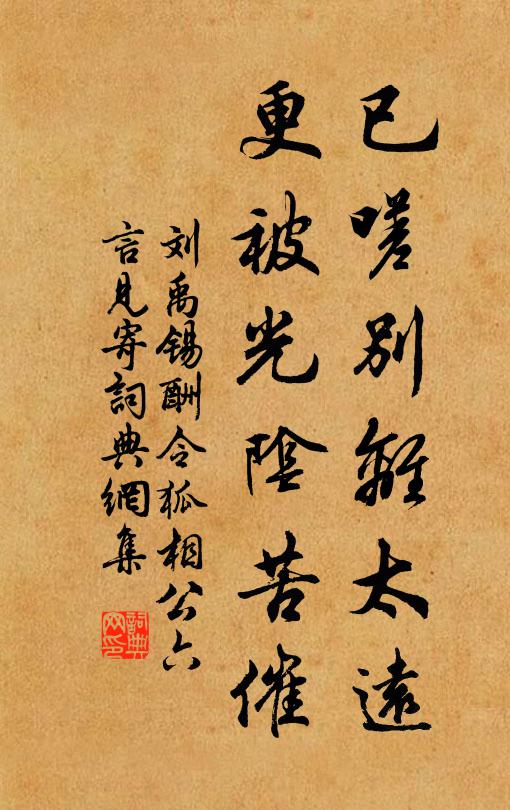 已嗟別離太遠
更被光陰苦催
刘禹锡酬令狐相公六
言見寄詞典網集
詞典
网印